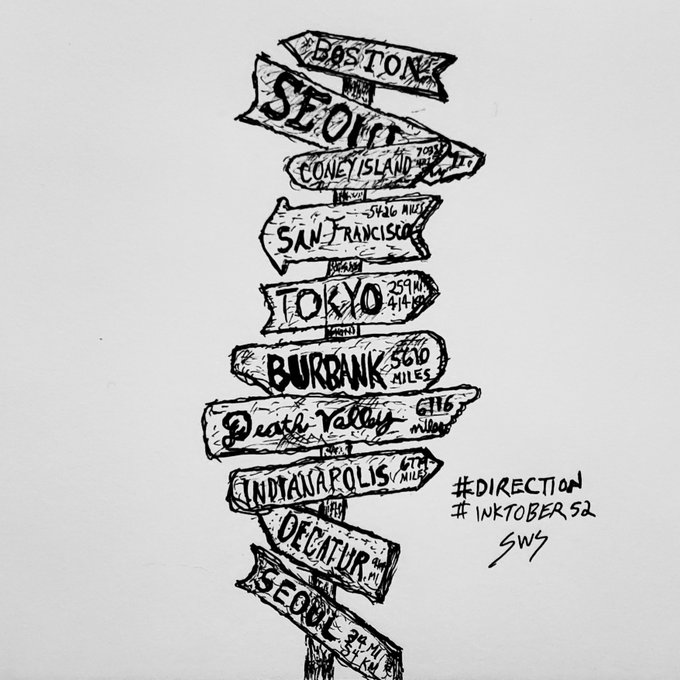 BOSTON
SEOUL
MI.
CONEY ISLAND 7033
SAN FRANCISCO 5426 MILES
TOKYO 259 MI.
414 KM
BURBANK 5610
MILES
Death Valley 6116
miles
INDIANAPOLIS
MILES
DECATUR
MI
SEOUL 34 MI
54 KM
#DIRECTION
#INKTOBER52
SWS